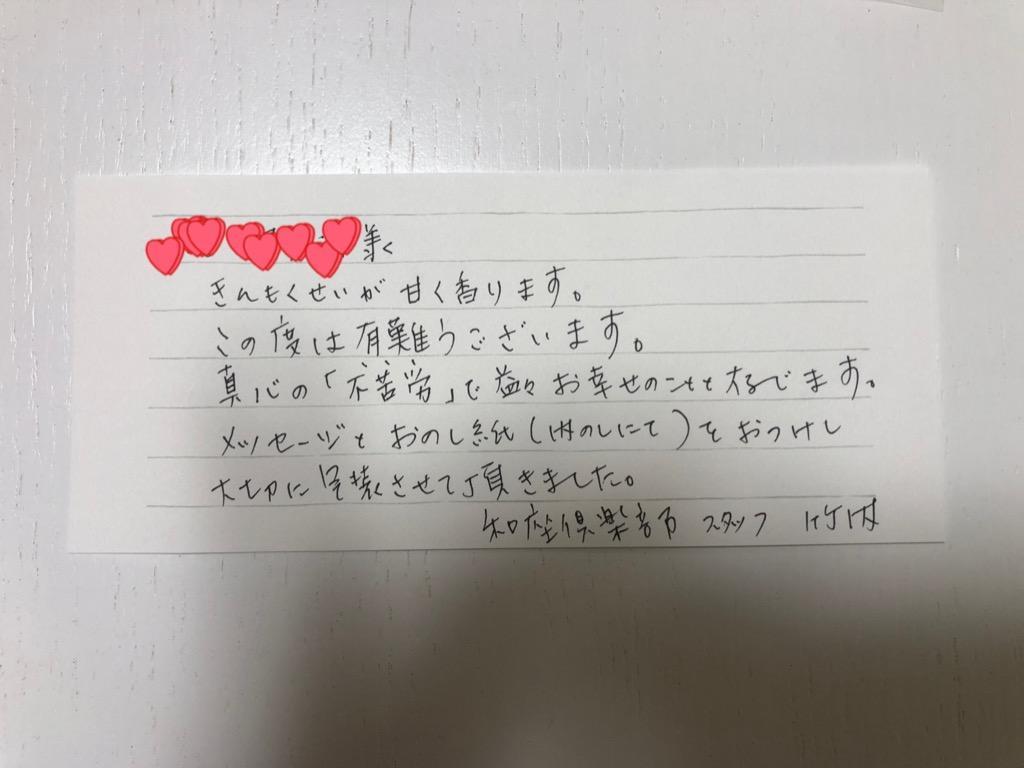 様
きんもくせいが甘く香ります。
この度は有難うございます。
真心の「不苦労」で益々お幸せのことと存じます。
メッセージとおのし紙(内のしにて)をおつけし
大切に包装させて頂きました。
和座倶楽部 スタッフ 竹内